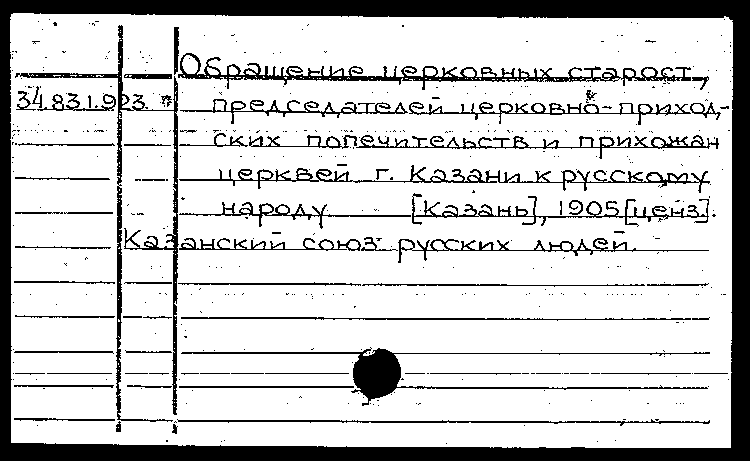 Обращение церковных старост,
34.83.1.923. председателей церковно-приход-
ских попечительств и прихожан
церквей г. Казани к русскому
народу [Казань], 1905 [ценз].
Казанский союз русских людей.